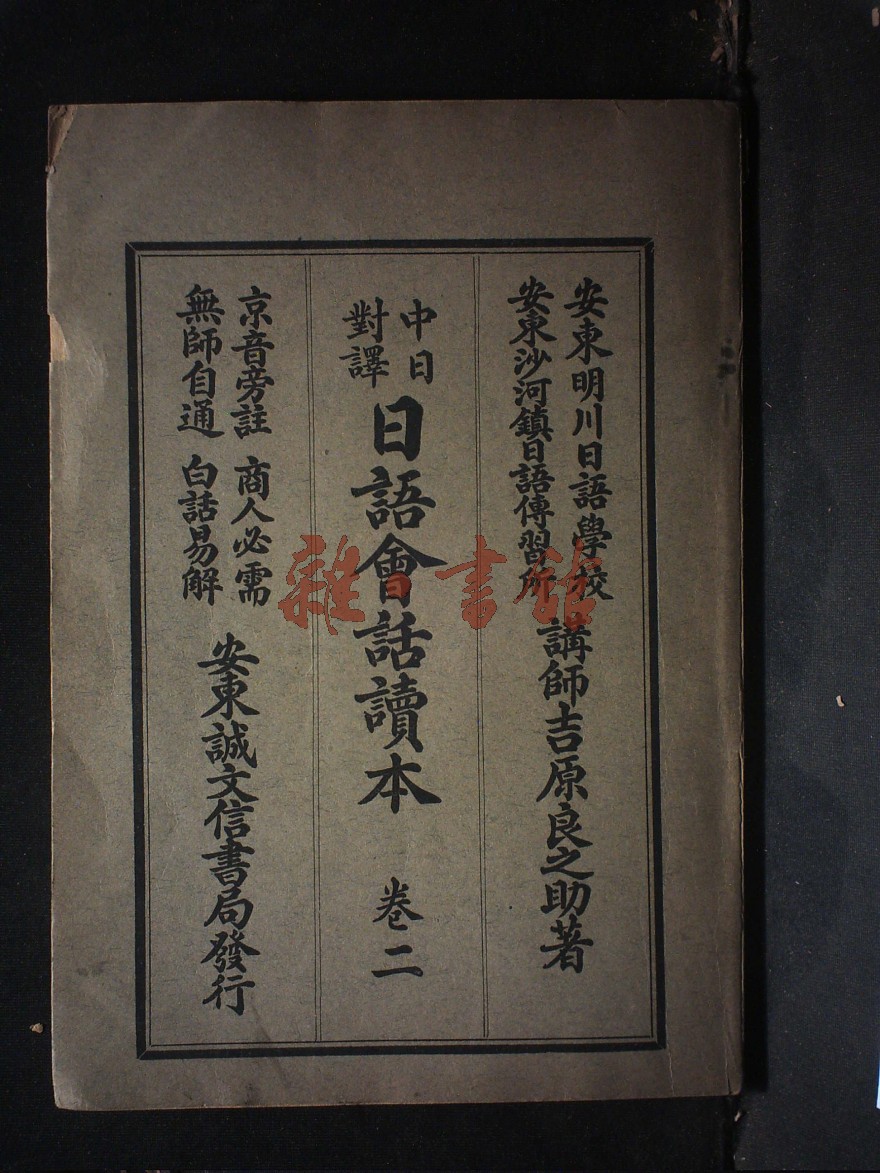 安東明川日語學校
安東沙河鎮日語傳習所
講師吉原良之助著
中日
對譯
日語會話讀本
卷二
京音旁註 商人必需
無師自通 白話易解
安東誠文信書局發行
雜·書舘